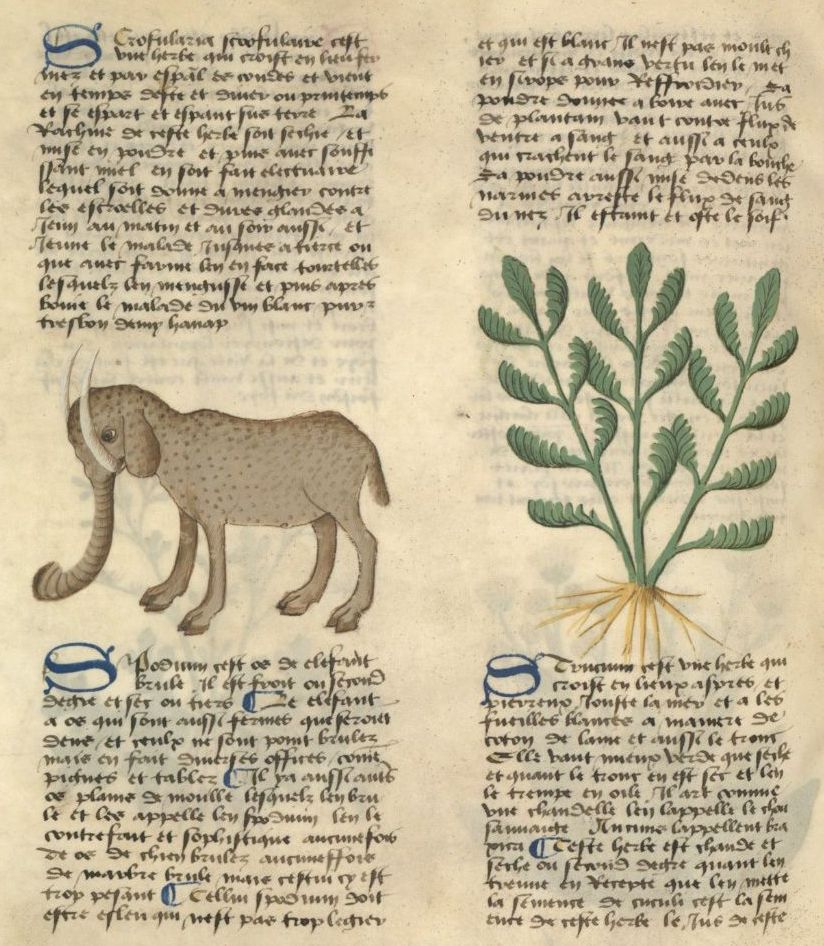 Scrofularia scrofulaire cest
une herbe qui croist en lieu fer
mez et par espal es condes et vient
en temps deste et diver ou printemps
et se espart et espant sus terre La
Rachine de ceste herbe soit sechie et
mise en poudre et puis avec souffi
ssant miel en soit fait electuaire
lequel soit donne a mengier contre
les escroelles et dures glandes a
Jeun au matin et au soir aussi et
Jeune le malade Jusques a tierce ou
que avec farine len en face tourtelles
lesquelz len mengusse et puis apres
boive le malade du vin blanc pur
tresbon demy hanap
Spodium cest os de elefant
brule Il est froit ou second
degre et sec ou tiers Le elefant
a os qui sont aussi fermes que seroient
dens et ceulx ne sont point brulez
mais en fait diverses offices come
pignes et tables Il ya aussi aults
os plains de moulle lesquelz len bru
le et les appelle len spodium len le
contrefait et sophistique aucunefois
de os de chien brulez aucuneffois
de marbre brule mais cestui cy est
trop pesant Cellui spodium doit
estre esleu qui nest pas trop legier
et qui est blanc Il nest pas moult ch
ier et si a grant vertu len le met
en sirops pour Reffroidier La
poudre donnee a boire avec Jus
de plantain vaut contre flux de
ventre a sang et aussi a ceulx
qui crachent le sang par la bouche
La poudre aussi mise dedens les
narines areste le flux de sang
du nez Il estraint et oste le soif
Strucium cest une herbe qui
croist en lieux aspres et
pierreux Jouste la mer et a les
fueilles blances a maniere de
coton de laine et aussi le tronc
Elle vaut mieux verde que seche
et quant le tronc en est sec et len
le trempe en oile Il art comme
une chandelle len lappelle le chou
sauvaige Aucuns lappellent bra
Ceste herbe est chaude et
seche ou second degre quant len
treuve en Recepte que len mette
la semence de cuculi cest la sem
ence de ceste herbe le Jus de este